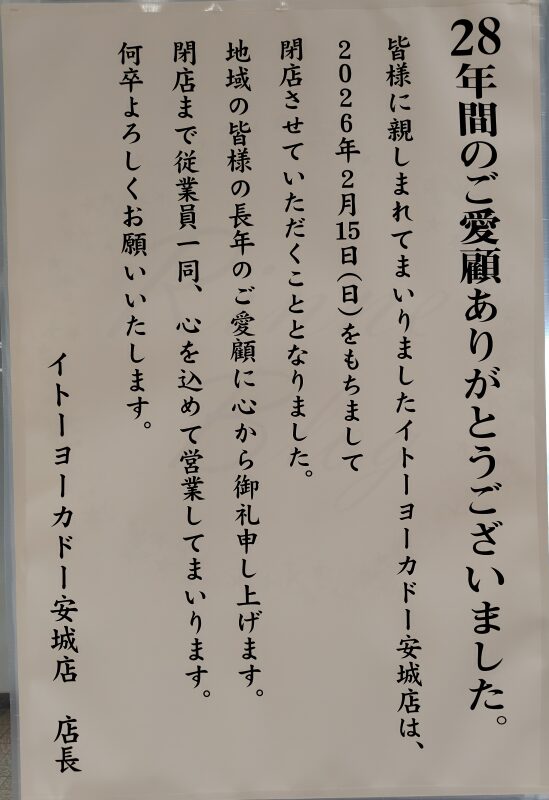 28年間のご愛顧ありがとうございました。
皆様に親しまれてまいりましたイトーヨーカドー安城店は、
2026年2月15日(日)をもちまして
閉店させていただくこととなりました。
地域の皆様の長年のご愛顧に心から御礼申し上げます。
閉店まで従業員一同、心を込めて営業してまいります。
何卒よろしくお願いいたします。
イトーヨーカドー安城店 店長